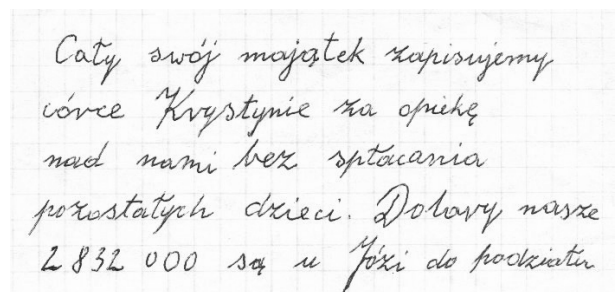 Cały swój majątek zapisujemy
córce Krystynie za opiekę
nad nami bez spłacania
pozostałych dzieci. Dolary nasze
2 832 000 są u Józi do podziału